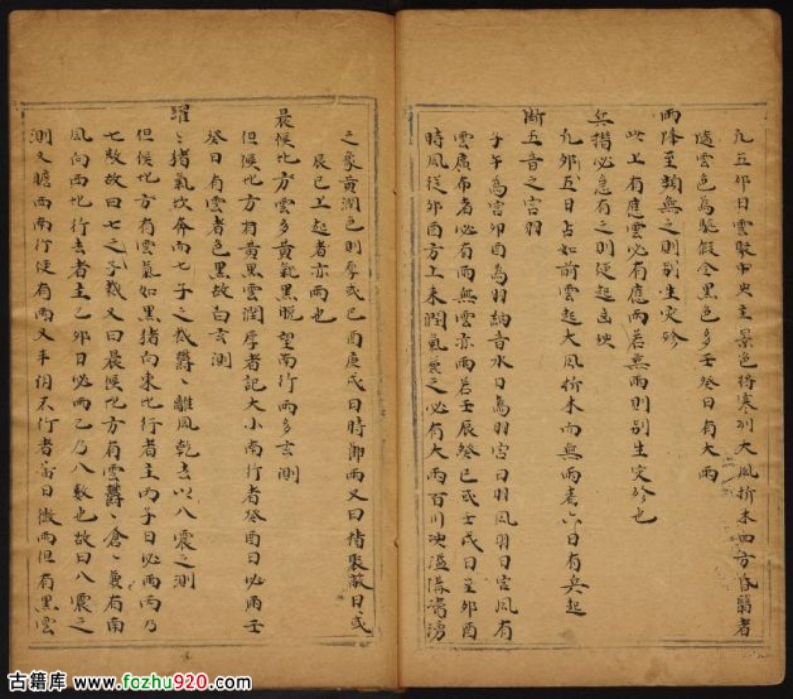 九五卯日雲聚中央主景色将寒列大風折木四方昏翳者
隨雲色為驗假令黑色多壬癸日有大雨
雨降至類無之則别生灾疹
此上有應雲必有應雨若無雨則别生灾疹也
兵措必急有之則便起凶殃
九卯五日占如前雲起大風折木而無雨者六日有兵起
斷五音之宫羽
子午為宫卯酉為羽納音水日為羽宫日羽風羽日宫風有
雲廣布者必有雨無雲亦雨若壬辰癸巳或壬戌日至卯酉
時風従卯酉方上来潤氣蒸之必有大雨百川泱溢溝澮湧
之象黄潤色則厚或己酉庚戌日時即雨又曰猪聚蔽日或
辰巳上起者亦雨也
晨候北方雲多黄氣黑脱望南行雨多玄測
但候北方有黄黑雲潤厚者記大小南行者癸酉日必雨壬
癸日有雲者色黑故曰玄測
躍躍猪氣坎奔而七子之裁爵爵離風乾去以八震之測
但候北方有雲氣如黑猪向東北行者主丙子日必雨丙乃
七数故曰七之子裁又曰晨候北方有雲爵爵倉倉幾有南
風向西北行去者主乙卯日必雨乙乃八数也故曰八震之
測又瞻西南行便有雨又手㐲不行者當日微雨但有黑雲
古籍库 www.fozhu920.com